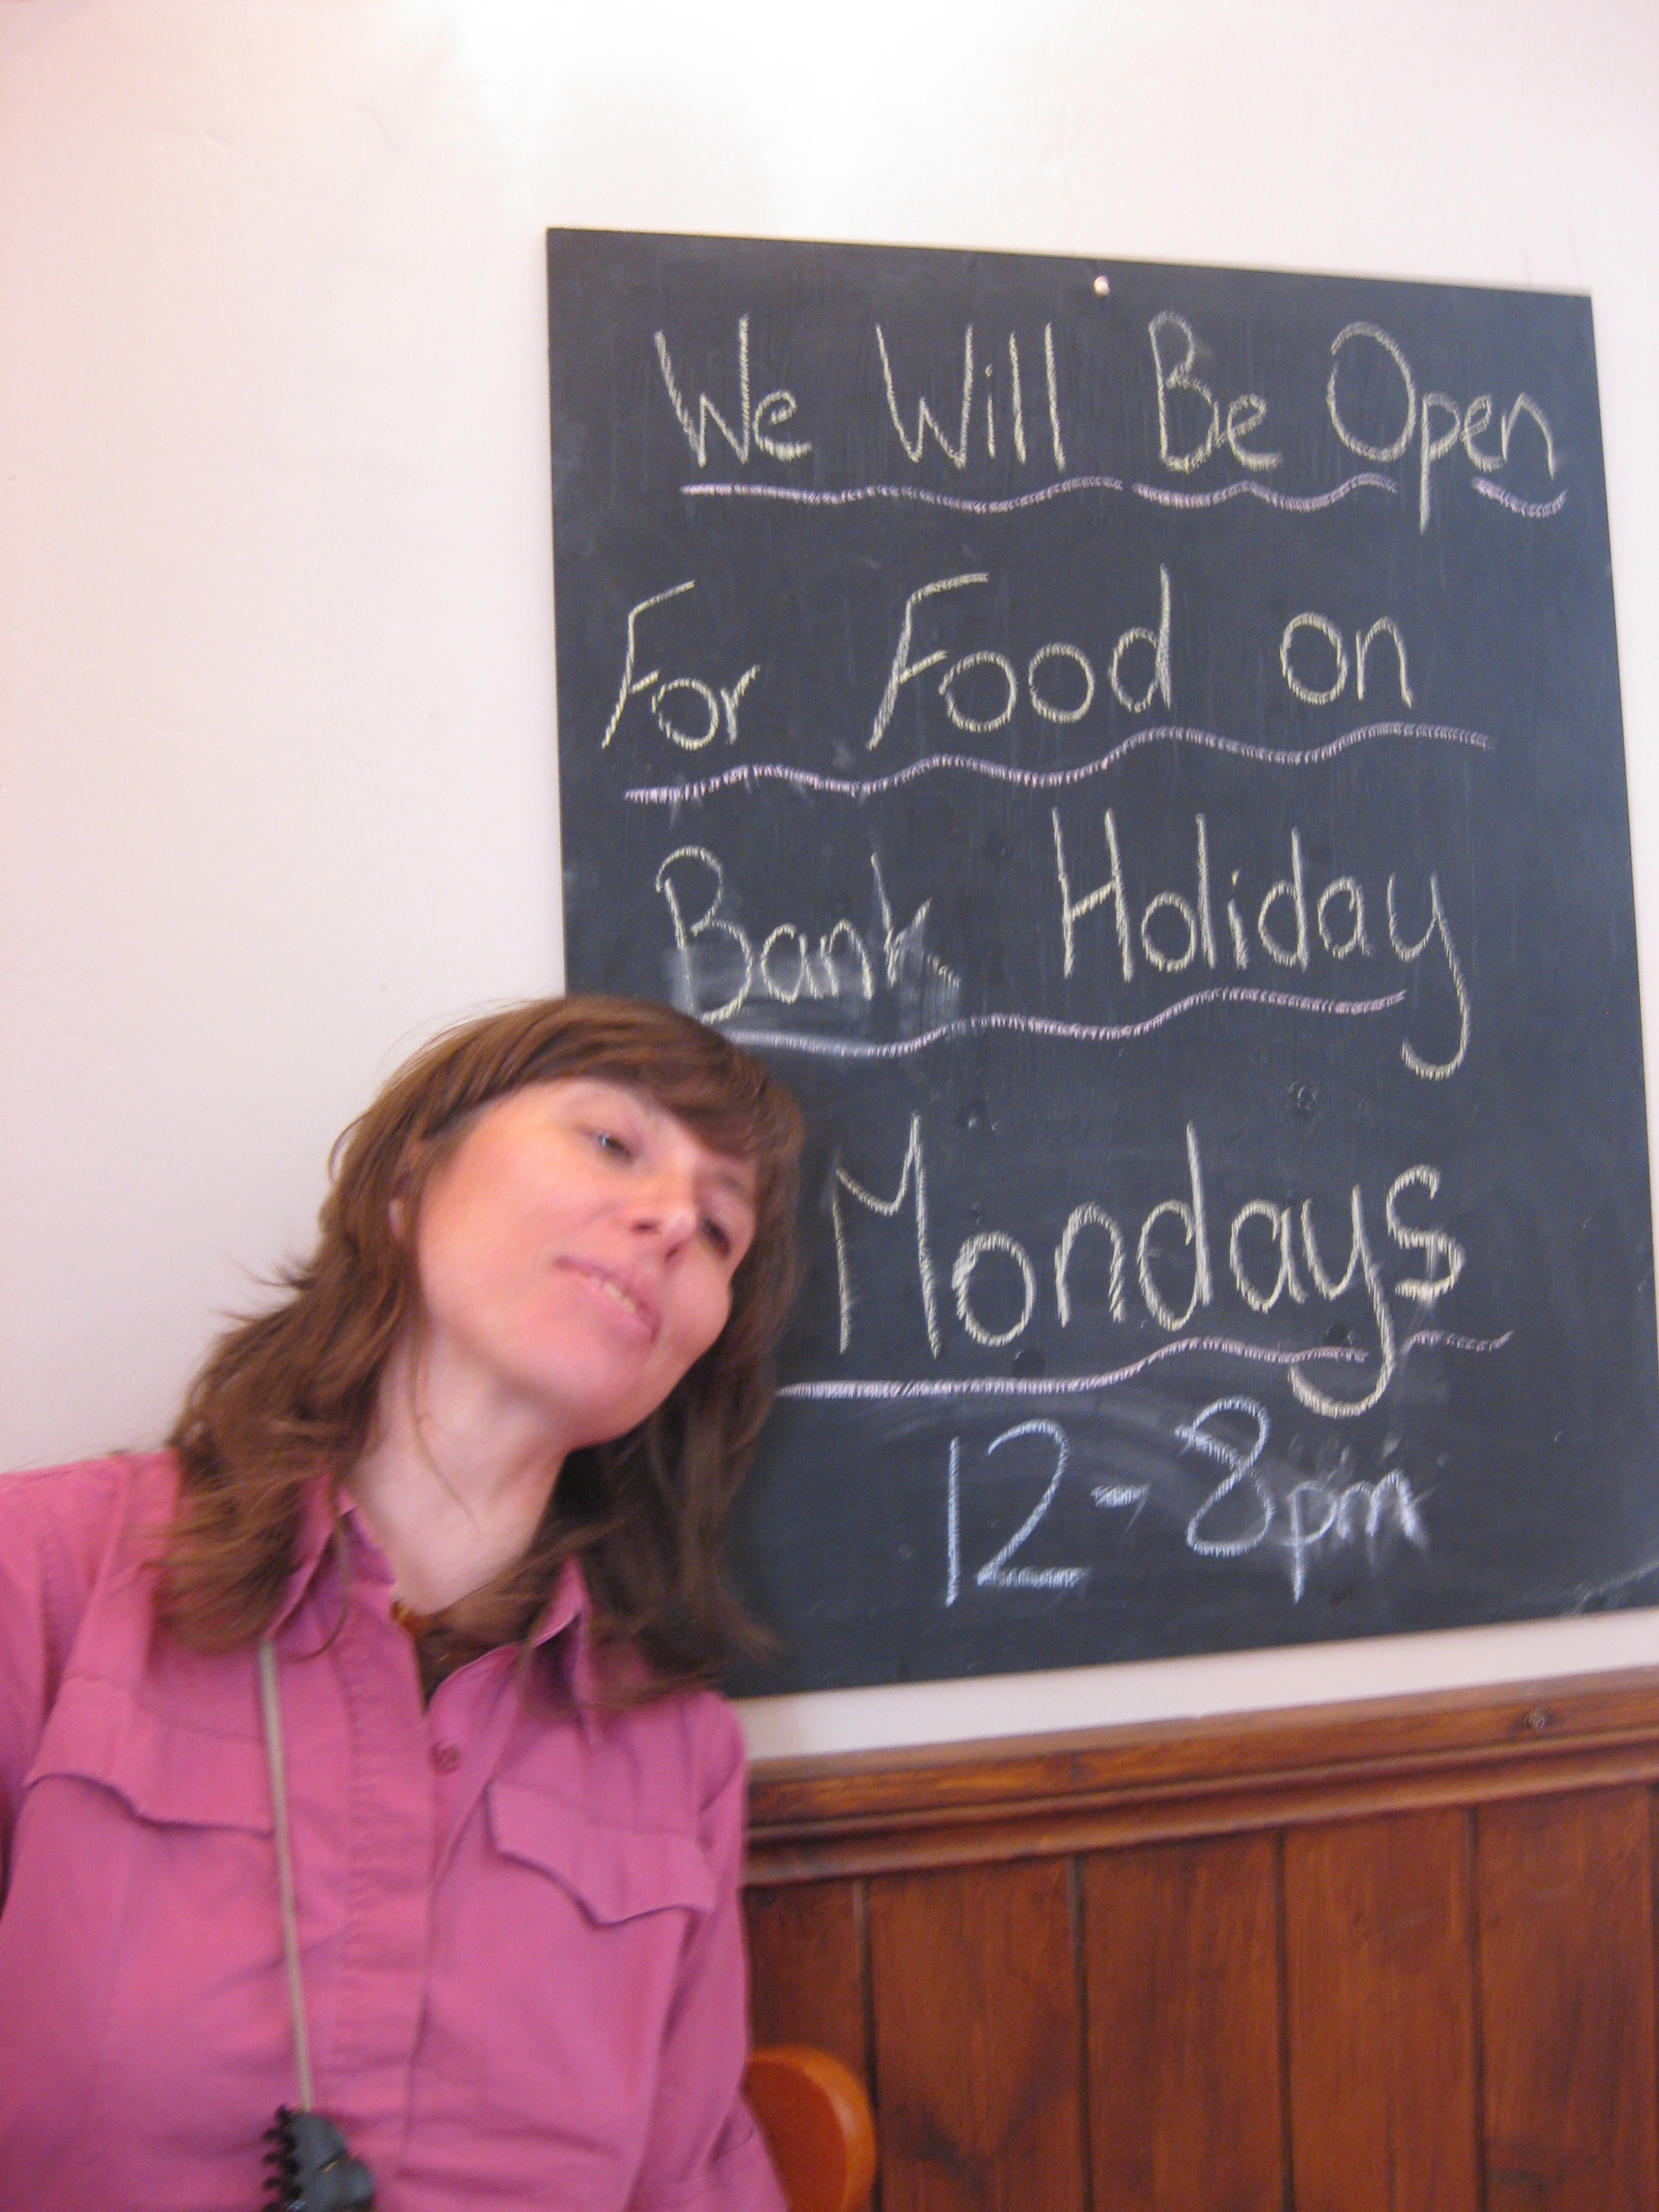 We Will Be Open
For Food on
Bank Holiday
Mondays
12-8pm